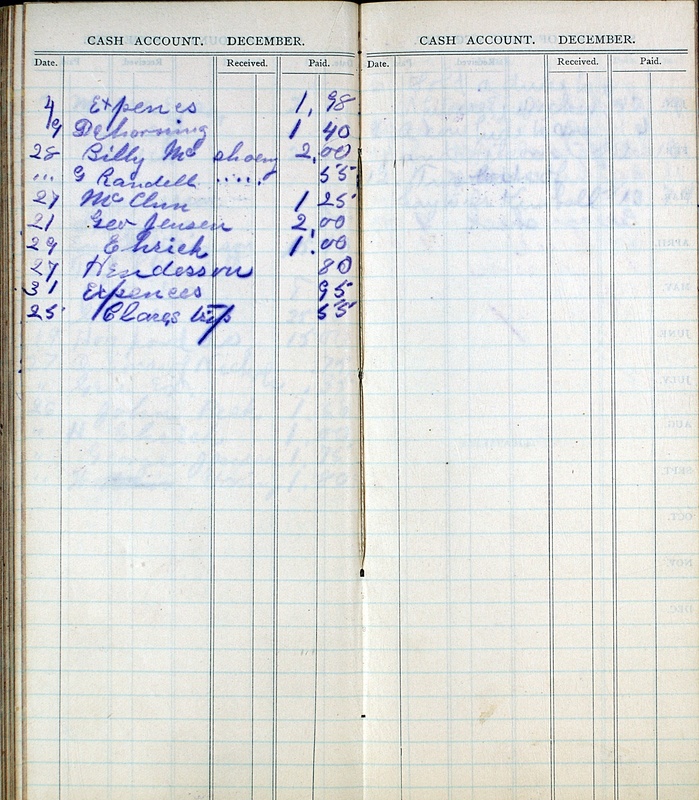 CASH ACCOUNT. DECEMBER.
Date. Received. Paid.
4 Expences 1, 98
19 Dehorning 1 40
28 Billy Mc shoeng 2,00
" G Randell ...... 55
27 McClun 1 25
21 Geo Jensen 2,00
29 Ehrich 1.00
27 Hendesson 80
31 Expences 95
25 Clares 55
CASH ACCOUNT. DECEMBER.
Date. Received. Paid.